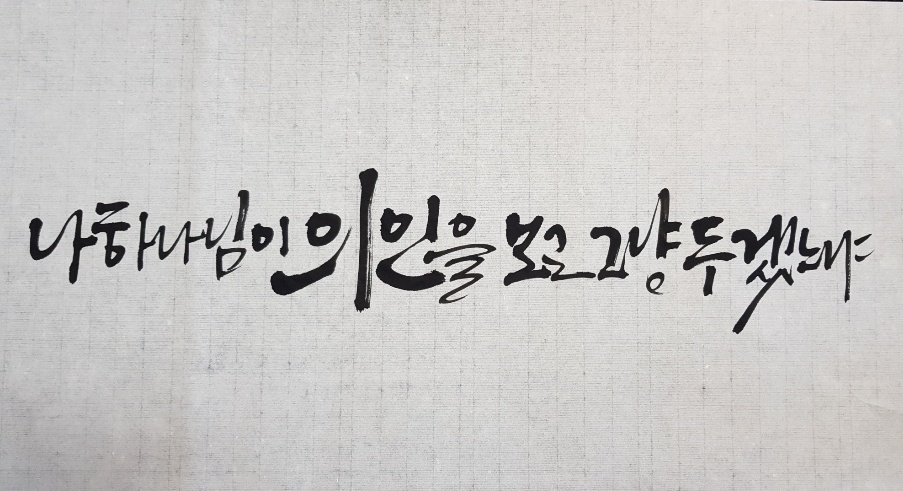 나 하나님이 의인을 보고 그냥 두겠느냐